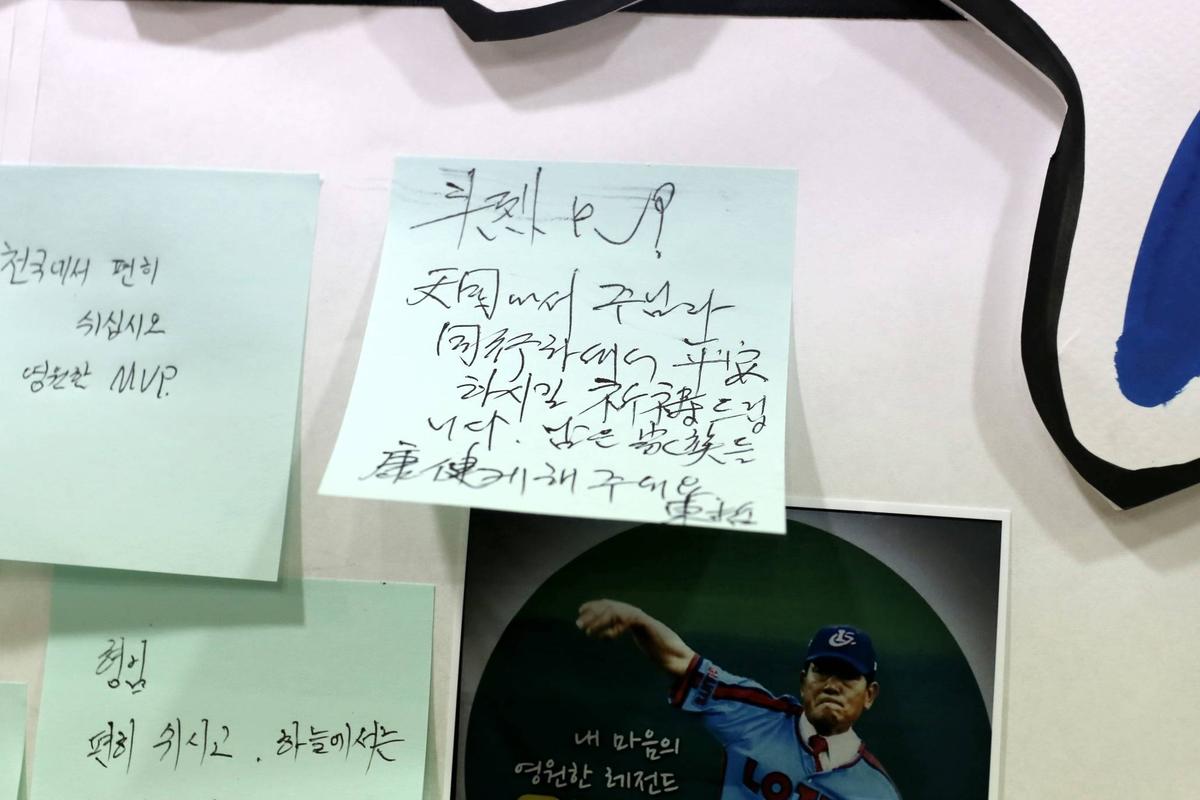 천국에서 편히
쉬십시오
영원한 MVP.
斗烈야!
天国에서 주님과
同行하면서 平安
하시길 祈禱드립
니다. 남은 家族들
康健케 해 주세요
형님
편히 쉬시고. 하늘에서는
내 마음의
영원한 레전드
LOT